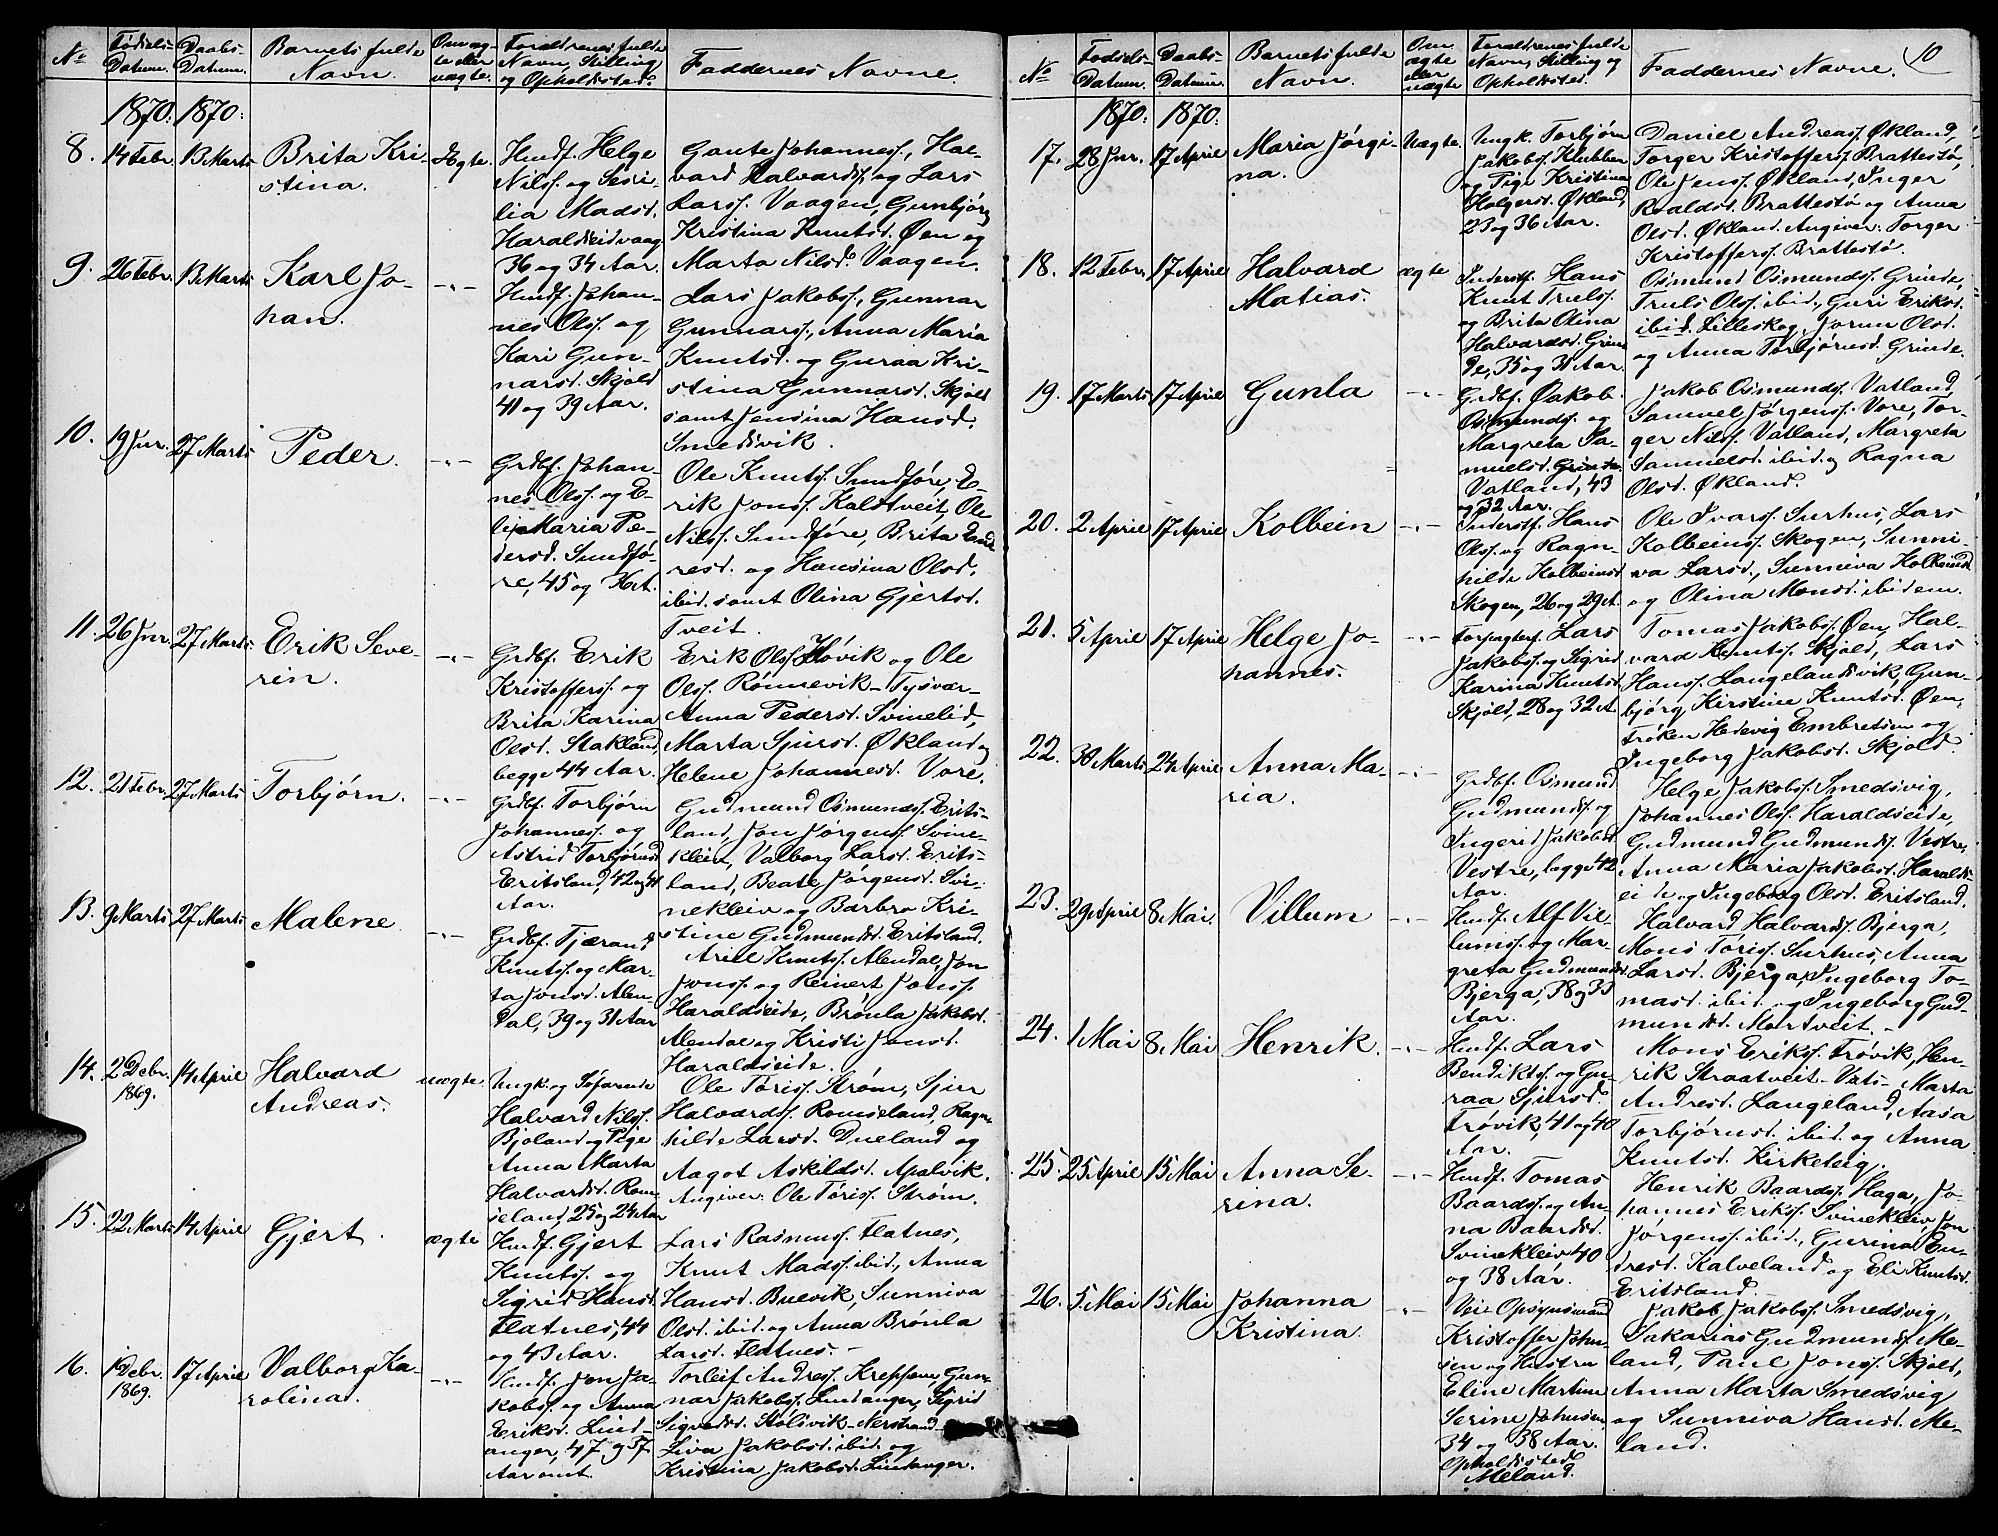 No
Fødsels-
Datum.
Daabs-
Datum.
Barnets fulde
Navn.
Om æg-
te eller
uægte.
Forældrenes fulde
Navn, Stilling
og Opholdssted.
Faddernes Navne.
1870. 1870.
8. 14 Febr. 13 Marts
Brita Kri-
stina.
Ægte.
Husmf. Helge
Nilss. og Sesi-
lia Madsd.
Haraldseidvaag
36 og 34 Aar.
Gaute Johanness., Hal-
vard Halvards. og Lars
Larss. Vaagen, Gunbjørg
Kristina Knutsd. Øen og
Marta Nilsd. Vaagen.
9. 26 Febr. 13 Marts
Karl Jo-
han.
-"-
Husmf. Johan-
nes Olss. og
Kari Gun-
narsd. Skjold
41 og 39 Aar.
Lars Jakobs., Gunnar
Gunnars., Anna Maria
Knutsd. og Guraa Kri-
stina Gunnarsd. Skjold
samt Jensina Hansd.
Smedsvik.
10. 19 Jnr. 27 Marts
Peder.
-"-
Grdbf. Johan-
nes Olss. og E-
li Maria Pe-
dersd. Sundfø-
re, 45 og
Ole Knuts. Sundføre, E-
rik Jons. Kaldtveit, Ole
Nilss. Sundføre, Brita End-
resd. og Hansina Olsd.
ibid. samt Olina Gjertsd.
Tveit.
11. 26 Jnr. 27 Marts
Erik Seve-
rin.
-"-
Grdbf. Erik
Kristoffers. og
Brita Karina
Olsd. Stakland,
begge 44 Aar.
Erik Olss. Høvik og Ole
Olss. Rønnevik - Tysvær -
Anna Pedersd. Svinelid,
Marta Sjursd. Økland og
Helene Johannesd. Vore.
12. 21 Febr. 27 Marts
Torbjørn.
-"-
Grdbf. Torbjørn
Johanness. og
Astrid Torbjørnsd.
Eritsland, 42 og 41
Aar.
Gudmund Osmunds. Erits-
land, Jon Jørgens. Svine-
kleiv, Valborg Larsd. Erits-
land, Beate Jørgensd. Svi-
nekleiv og Barbro Kri-
stine Gudmundsd. Eritsland.
13. 9 Marts 27 Marts
Malene.
-"-
Grdbf. Tjærand
Knutss. og Mar-
ta Jonsd. Alen-
dal, 39 og 31 Aar
Ariel Knuts. Alendal, Jon
Jonss. og Reinert Jonss.
Haraldseide, Brønla Jakobsd.
Alendal og Kristi Jonsd.
Haraldseide.
14. 2 Debr.
1869. 14 April
Halvard
Andreas.
uægte.
Ungk. og Søfarende
Halvard Nilss.
Bjoland og Pige
Anna Marta
Halvardsd. Rom-
seland, 25 og 24 Aar
Ole Tøriss. Strøm, Sjur
Halvards. Romseland, Ragn-
hilde Larsd. Dueland og
Aagot Askildsd. Apalvik.
Angiver: Ole Tøriss. Strøm.
15. 22 Marts 14 April
Gjert.
ægte
Husmf. Gjert
Knuts. og
Sigrid Hansd.
Flatnes, 44
og 43 Aar.
Lars Rasmuss. Flatnes,
Knut Madss. ibid., Anna
Hansd. Buevik, Sunniva
Olsd. ibid. og Anna Brønla
Larsd. Flatnes. -
16. 1 Debr.
1869. 17 April
Valborg Ka-
rolina.
-"-
Husmf. Jon Ja-
kobss. og Anna
Eriksd. Lind-
anger, 47 og 37
Aar omt.
Torleif Andress. Kreppene, Gun-
nar Jakobs. Lindanger, Sigrid
Sigvadsd. Stølsvik - Nerstrand -
Siva Jakobsd. ibid. og
Kristina Jakobsd. Lindanger.
10
No
Fødsels-
Datum.
Daabs-
Datum.
Barnets fulde
Navn.
Om
ægte
eller
uægte
Forældrenes fulde
Navn, Stilling og
Opholdssted.
Faddernes Navne.
1870. 1870.
17. 28 Jnr. 17 April
Maria Jørgi-
na.
Uægte.
Ungk. Torbjørn
Jakobs. Klubben
og Pige Kristina
Holgersd. Økland,
23 og 36 Aar.
Daniel Andreass. Økland,
Torger Kristoffers. Brattestø,
Ole Jenss. Økland, Inger
Roaldsd. Brattestø og Anna
Olsd. Økland. Angiver: Torger
Kristoffers. Brattestø.
18. 12 Febr. 17 April
Halvard
Matias.
ægte
Inderstf. Hans
Knut Trulss.
og Brita Olina
Halvardsd. Grin-
de, 35 og 31 Aar.
Osmund Osmunds. Grinde,
Truls Olss. ibid., Guri Eriksd.
ibid. Lilleskog, Jorun Olsd.
og Anna Torbjørnsd. Grinde.
19. 17 Marts 17 April
Gunla
-"-
Grdbf. Jakob
Osmunds. og
Margreta Sa-
muelsd. Grinde
Vatland, 43
og 32 Aar.
Jakob Osmunds. Vatland,
Samuel Jørgens. Vore, Tor-
ger Nilss. Vatland, Margreta
Samuelsd. ibid. og Ragna
Olsd. Økland.
20. 2 April 17 April
Kolbein
-"-
Inderstf. Hans
Olss. og Ragn-
hilde Kolbeinsd.
Skogen, 26 og 29 A.
Ole Ivars. Surhus, Lars
Kolbeinss. Skogen, Sunni-
va Larsd., Sunniva Kolbeinsd.
og Olina Monsd. ibidem.
21. 5 April 17 April
Helge Jo-
hannes.
-"-
Forpagterf. Lars
Jakobs. og Sigrid
Karina Knutsd.
Skjold, 28 og 32 A.
Tomas Jakobs. Øen, Hal-
vard Knuts. Skjold, Lars
Hanss. Langelandsvik, Gun-
bjørg Kirstine Knutsd. Øen,
Frøken Hedevig Embretsen og
Ingeborg Jakobsd. Skjold
22. 30 Marts 24 April
Anna Ma-
ria.
-"-
Grdbf. Osmund
Gudmunds. og
Ingerid Jakobsd.
Vestre, begge 42
Aar.
Helge Jakobs. Smedsvig,
Johannes Olss. Haraldseide,
Gudmund Gudmunds. Vestre,
Anna Maria Jakobsd. Haralds-
eide og Ingeborg Olsd. Eritsland.
23. 29 April 8 Mai.
Villum
-"-
Husmf. Alf Vil-
lumss. og Mar-
greta Gudmundsd.
Bjerga, 38 og 33
Aar.
Halvard Halvards. Bjerga,
Mons Tøriss. Surhus, Anna
Larsd. Bjerga, Ingeborg To-
masd. ibid. og Ingeborg Gud-
mundsd. Mortveit. -
24. 1 Mai 8 Mai
Henrik.
-"-
Husmf. Lars
Bendikts. og Gu-
raa Sjursd.
Frøvik, 41 og 40
Aar.
Mons Eriks. Frøvik, Hen-
rik Straatveit - Vats - Marta
Andresd. Langeland, Aasa
Torbjørnsd. ibid. og Anna
Knutsd. Kirketeig.
25. 25 April 15 Mai
Anna Se-
rina.
-"-
Husmf. Tomas
Baardss. og An-
na Baardsd.
Svinekleiv 40
og 38 Aar.
Henrik Baards. Haga, Jo-
hannes Eriks. Svinekleiv, Jon
Jørgens. ibid., Gurina En-
dresd. Kalveland og Eli Knutsd.
Eritsland.
26. 5 Mai 15 Mai
Johanna
Kristina.
-"-
Vei Opsynsmand
Kristoffer John-
sen og Hustru
Eline Martine
Serine Johnsen,
34 og 38 Aar.
Opholdssted
Meland.
Jakob Jakobs. Smedsvig,
Sakarias Gudmunds. Me-
land, Paul Jonss. Skjold,
Anna Marta Smedsvig
og Sunniva Hansd. Me-
land.